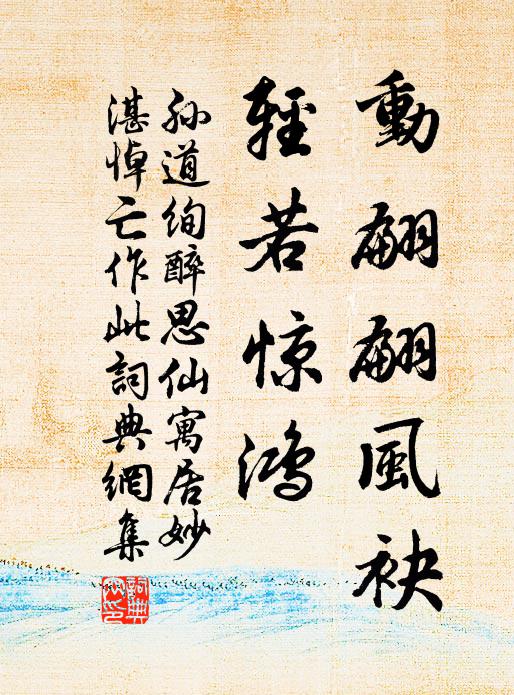 動翩翩風袂
輕若惊鴻
孙道绚醉思仙寓居妙
湛悼亡作此詞典網集